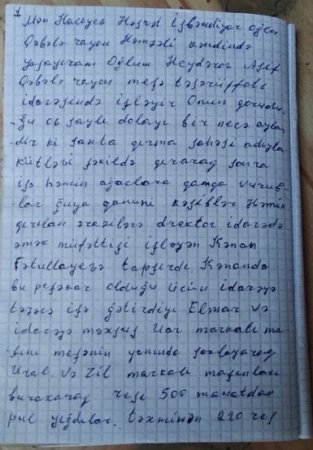 1
Mən Həsəyev Həşrət İsfəndiyar oğlu
Qəbələ rayon Həmzəli kəndində
yaşayıram Oğlum Heydərov Asif
Qəbələ rayon meşə təsərüffatı
idarəsində işləyir Onun
sayılı dolayı bir neçə aydan
dır ki sahəsi adıyla
kütləvi şəkildə qıraraq sonra
isə həmin ağaclara damğa vurub
lar guya qanuni kəsiblər Həmin
qırılan əraziləri direktor idarədə
əmək müfəttişi işləyən Kənan
Fətullayevə tapşırdı Kənanda
bu peşəkar olduğu üçün idarəyə
təzəcə işə gətirdiyi Elmar və
idarəyə məxsus Uaz markalı ma
şını meşənin yanında saxlayaraq
Ural və Zil markalı maşınları
buraxaraq reysi 500 manatdan
pul yığdılar. təxminən 220 reys